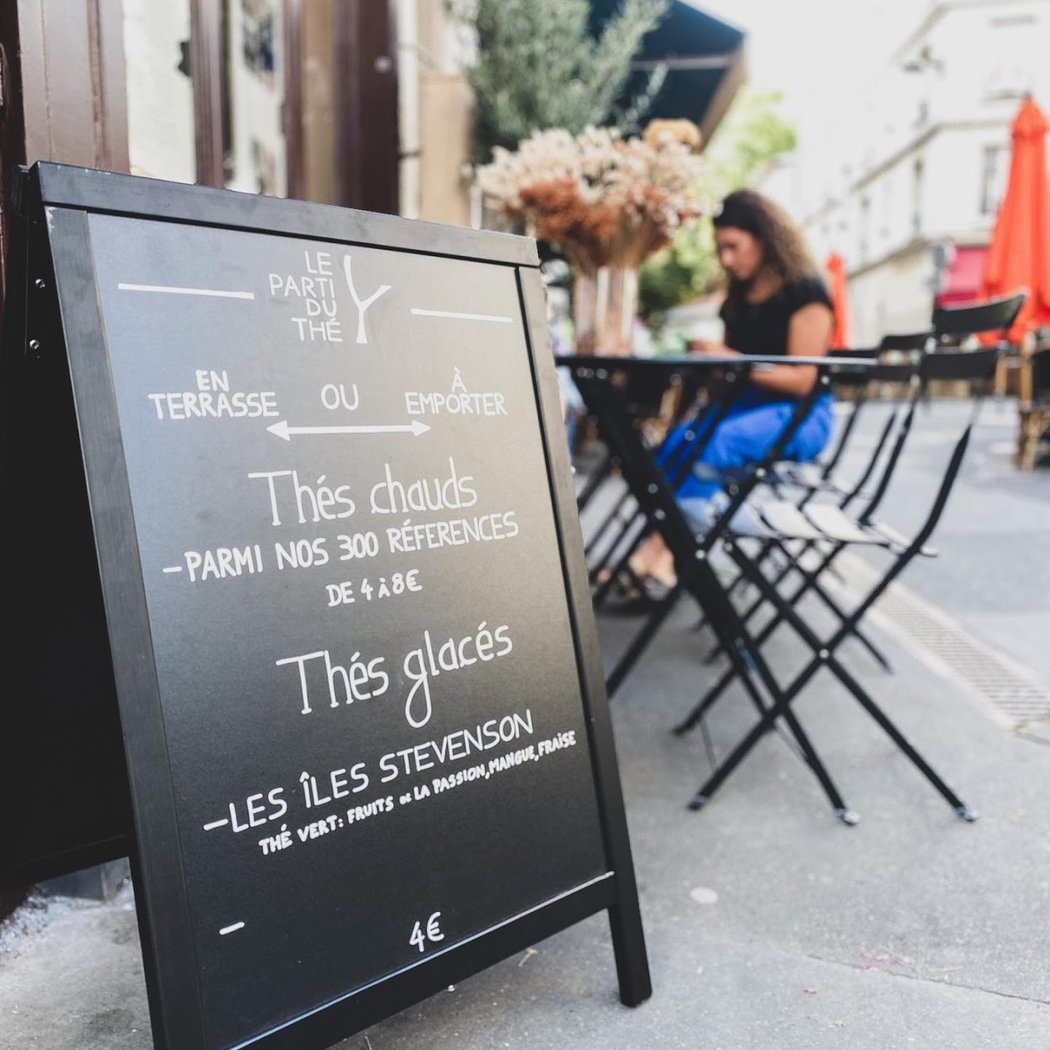 LE
PARTI
DU
THÉ
EN
TERRASSE
OU
À
EMPORTER
Thés chauds
-PARMI NOS 300 RÉFERENCES
DE 4 À 8€
Thés glacés
-LES ÎLES STEVENSON
THÉ VERT: FRUITS DE LA PASSION, MANGUE, FRAISE
-
4€